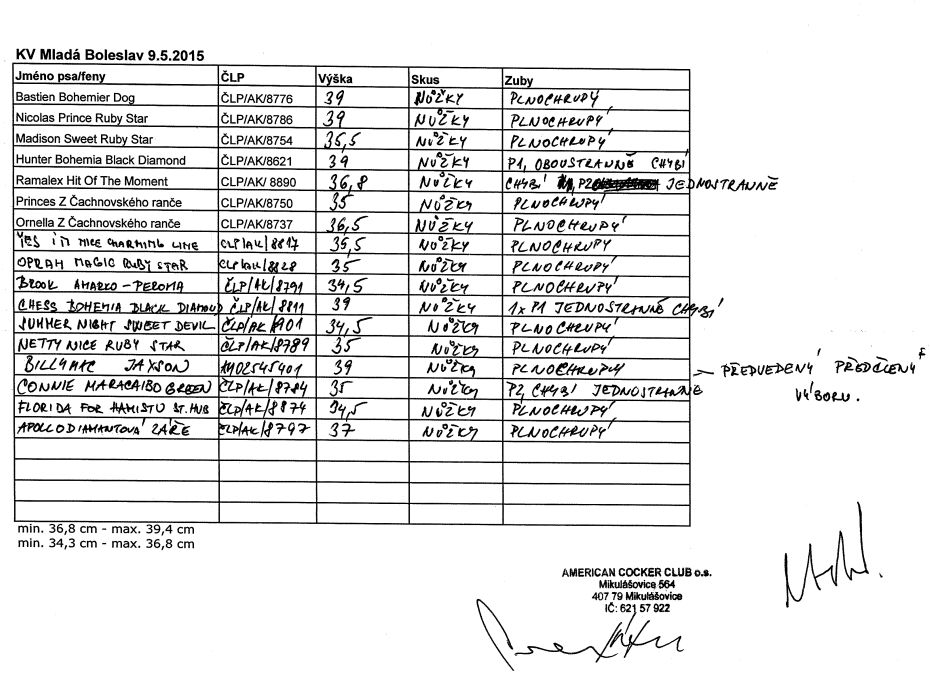 KV Mladá Boleslav 9.5.2015
Jméno psa/feny ČLP Výška Skus Zuby
Bastien Bohemier Dog ČLP/AK/8776 39 NŮŽKY PLNOCHRUPÝ
Nicolas Prince Ruby Star ČLP/AK/8786 39 NŮŽKY PLNOCHRUPÝ
Madison Sweet Ruby Star ČLP/AK/8754 35,5 NŮŽKY PLNOCHRUPÝ
Hunter Bohemia Black Diamond ČLP/AK/8621 39 NŮŽKY P1, OBOUSTRANNĚ CHYBÍ
Ramalex Hit Of The Moment ČLP/AK/ 8890 36,8 NŮŽKY CHYBÍ P2 JEDNOSTRANNĚ
Princes Z Čachnovského ranče ČLP/AK/8750 35 NŮŽKY PLNOCHRUPÝ
Ornella Z Čachnovského ranče ČLP/AK/8737 36,5 NŮŽKY PLNOCHRUPÝ
YES I'M NICE CHARMING LINE CLP/AK/8817 35,5 NŮŽKY PLNOCHRUPÝ
OPRAH MAGIC RUBY STAR CLP/AK/8828 35 NŮŽKY PLNOCHRUPÝ
BROOK AMARKO-PEROMA ČLP/AK/8791 34,5 NŮŽKY PLNOCHRUPÝ
CHESS BOHEMIA BLACK DIAMOND ČLP/AK/8811 39 NŮŽKY 1x P1 JEDNOSTRANNĚ CHYBÍ
SUMMER NIGHT SWEET DEVIL ČLP/AK/8901 34,5 NŮŽKY PLNOCHRUPÝ
NETTY NICE RUBY STAR ČLP/AK/8789 35 NŮŽKY PLNOCHRUPÝ
BILLYMAC JAXSON 39 NŮŽKY PLNOCHRUPÝ — PŘEDVEDENÝ
VÝBORU.
CONNIE MARACAIBO GREEN ČLP/AK/8784 35 NŮŽKY P2, CHYBÍ JEDNOSTRANNĚ
FLORIDA FOR HAMISTU ST. HUB ČLP/AK/8874 34,5 NŮŽKY PLNOCHRUPÝ
APOLLO DIAMANTOVÁ ZÁŘE ČLP/AK/8797 37 NŮŽKY PLNOCHRUPÝ
min. 36,8 cm - max. 39,4 cm
min. 34,3 cm - max. 36,8 cm
AMERICAN COCKER CLUB o.s.
Mikulášovice 564
407 79 Mikulášovice
IČ: 621 57 922